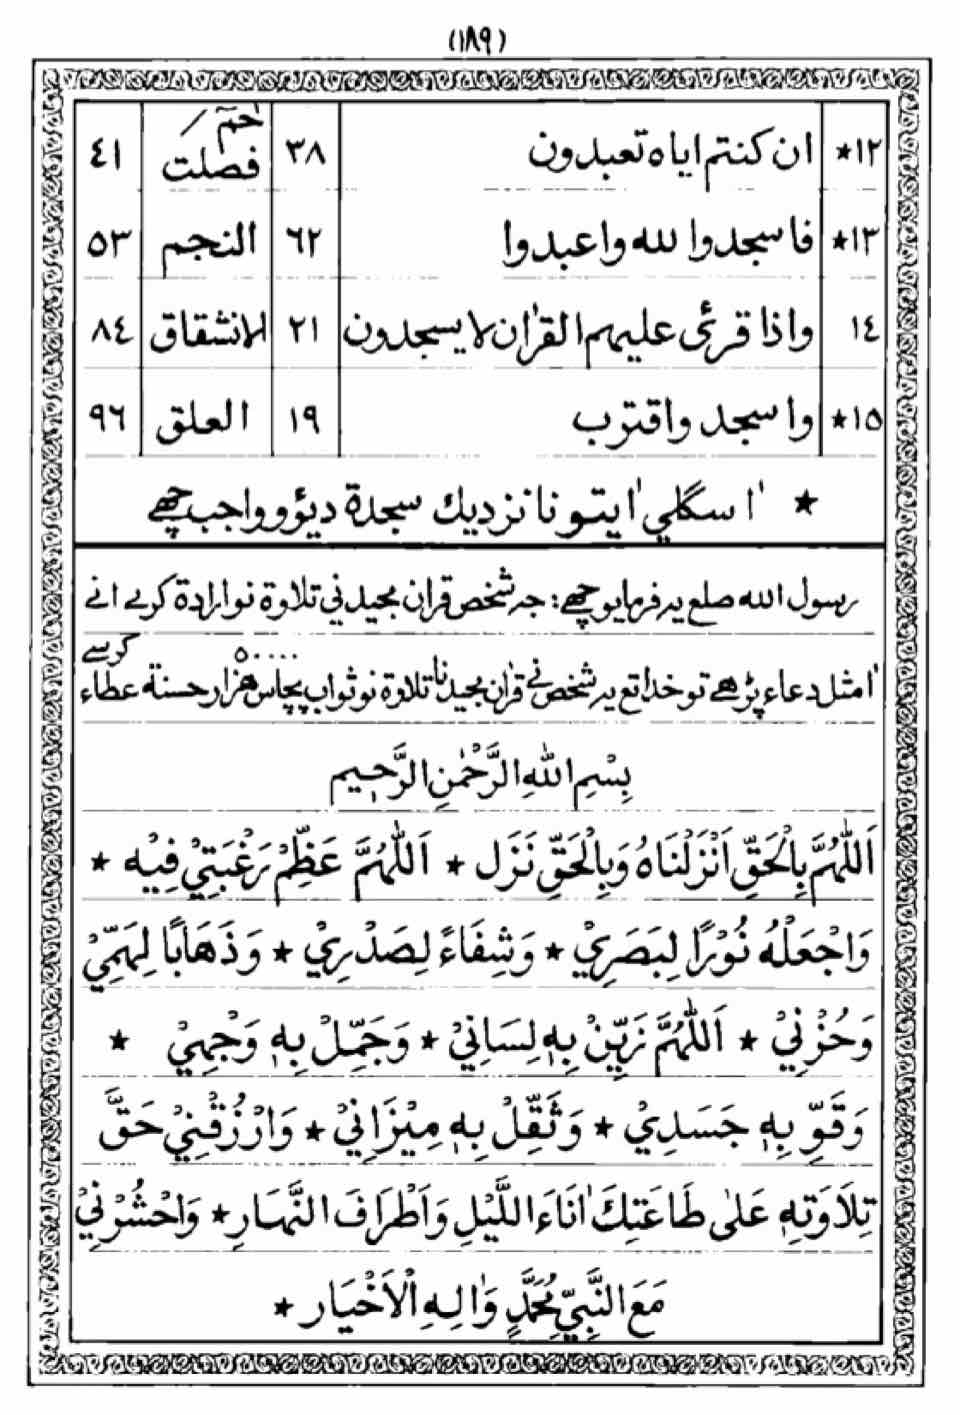 (١٨٩)
١٢* ان كنتم اياه تعبدون ٣٨ حٰمٓ فصلت ٤١
١٣* فاسجدوا لله واعبدوا ٦٢ النجم ٥٣
١٤ واذا قرئ عليهم القرٰان لا يسجدون ٢١ الانشقاق ٨٤
١٥* واسجد واقترب ١٩ العلق ٩٦
* اٰ سگلي اٰيتو نا نزديك سجدة ديؤو واجب چھے
رسول الله صلع يه فرمايو چھے: جه شخص قران مجيد ني تلاوة نو ارادة كرے انے
اٰمثل دعاء پڑھے تو خدا تع يه شخص نے قراٰن مجيد نا تلاوة نو ثواب پچاس هزار ٥٠٠٠٠ حسنة عطاء كرسے
بِسْمِ اللهِ الرَّحْمٰنِ الرَّحِيم
اَللّٰهُمَّ بِالْحَقِّ اَنْزَلْنَاهُ وَبِالْحَقِّ نَزَل * اَللّٰهُمَّ عَظِّمْ رَغْبَتِيْ فِيْه *
وَاجْعَلْهُ نُوْرًا لِبَصَرِيْ * وَشِفَاءً لِصَدْرِيْ * وَذَهَابًا لِهَمِّيْ
وَحُزْنِيْ * اَللّٰهُمَّ زَيِّنْ بِهٖ لِسَانِيْ * وَجَمِّلْ بِهٖ وَجْهِيْ *
وَقَوِّ بِهٖ جَسَدِيْ * وَثَقِّلْ بِهٖ مِيْزَانِيْ * وَارْزُقْنِيْ حَقَّ
تِلَاوَتِهٖ عَلٰى طَاعَتِكَ اٰنَاءَ اللَّيْلِ وَاَطْرَافَ النَّهَارِ * وَاحْشُرْنِيْ
مَعَ النَّبِيِّ مُحَمَّدٍ وَاٰلِهِ الْاَخْيَار *